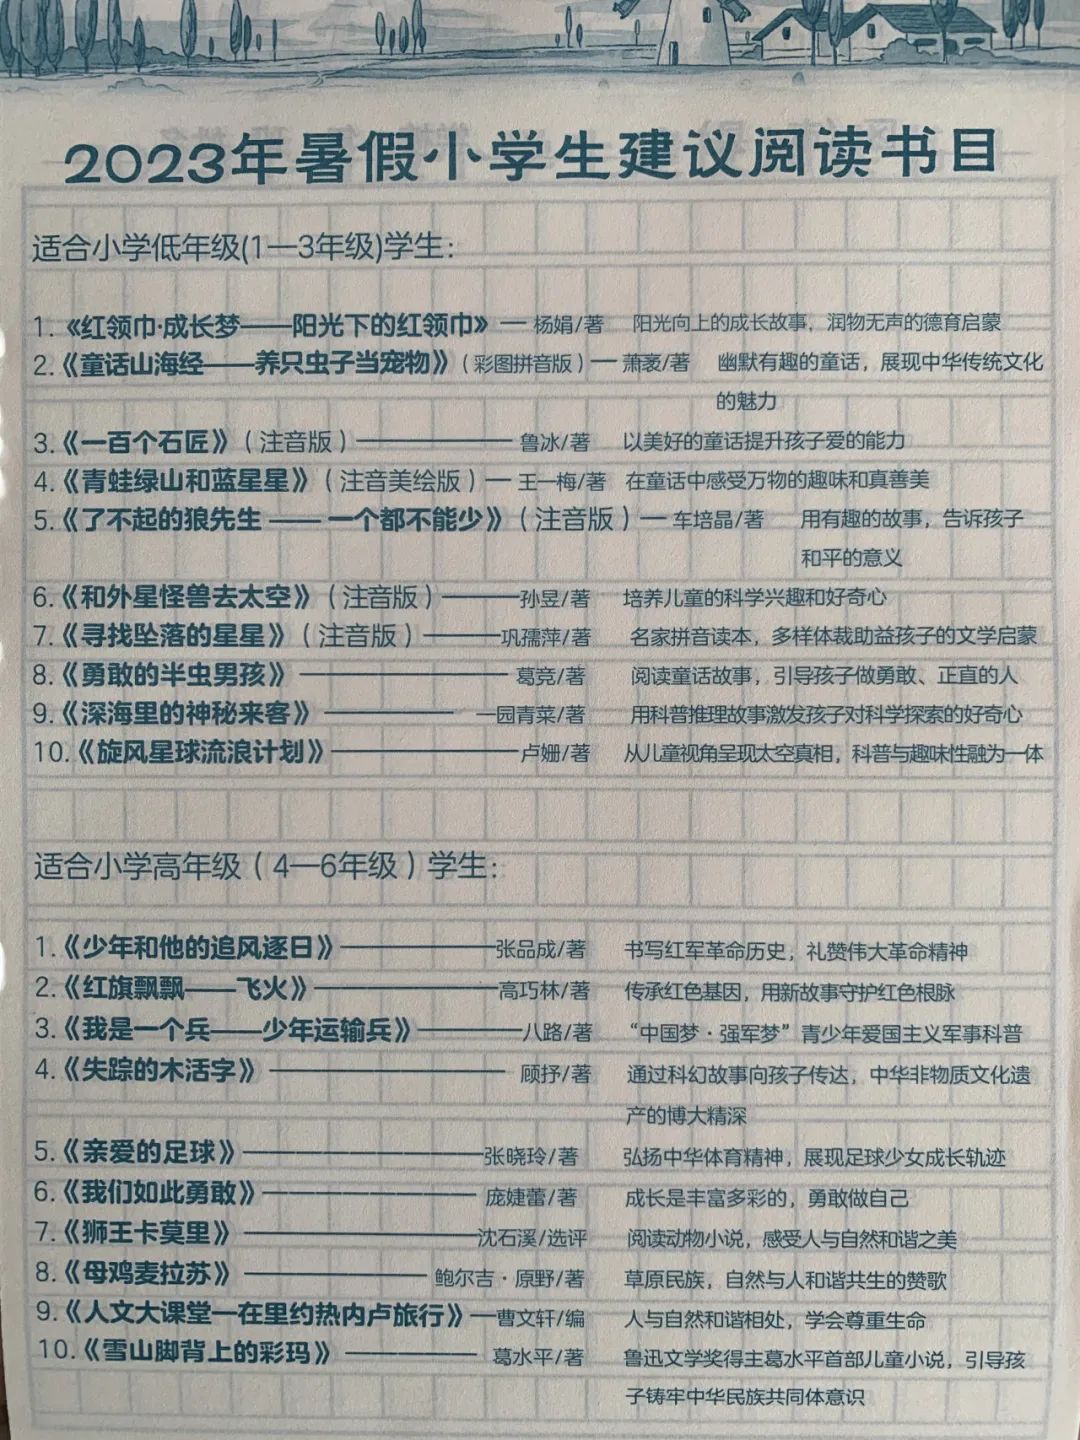 2023年暑假小学生建议阅读书目
适合小学低年级(1—3年级)学生：
1.《红领巾·成长梦——阳光下的红领巾》— 杨娟/著 阳光向上的成长故事，润物无声的德育启蒙
2.《童话山海经——养只虫子当宠物》（彩图拼音版）— 萧袤/著 幽默有趣的童话，展现中华传统文化
的魅力
3.《一百个石匠》（注音版）———— 鲁冰/著 以美好的童话提升孩子爱的能力
4.《青蛙绿山和蓝星星》（注音美绘版）— 王一梅/著 在童话中感受万物的趣味和真善美
5.《了不起的狼先生 —— 一个都不能少》（注音版）— 车培晶/著 用有趣的故事，告诉孩子
和平的意义
6.《和外星怪兽去太空》（注音版）———孙昱/著 培养儿童的科学兴趣和好奇心
7.《寻找坠落的星星》（注音版）———巩孺萍/著 名家拼音读本，多样体裁助益孩子的文学启蒙
8.《勇敢的半虫男孩》————— 葛竞/著 阅读童话故事，引导孩子做勇敢、正直的人
9.《深海里的神秘来客》———— —园青菜/著 用科普推理故事激发孩子对科学探索的好奇心
10.《旋风星球流浪计划》—————卢姗/著 从儿童视角呈现太空真相，科普与趣味性融为一体
适合小学高年级（4—6年级）学生：
1.《少年和他的追风逐日》————张品成/著 书写红军革命历史，礼赞伟大革命精神
2.《红旗飘飘——飞火》————高巧林/著 传承红色基因，用新故事守护红色根脉
3.《我是一个兵——少年运输兵》———八路/著 “中国梦·强军梦”青少年爱国主义军事科普
4.《失踪的木活字》————— 顾抒/著 通过科幻故事向孩子传达，中华非物质文化遗
产的博大精深
5.《亲爱的足球》—————张晓玲/著 弘扬中华体育精神，展现足球少女成长轨迹
6.《我们如此勇敢》———— 庞婕蕾/著 成长是丰富多彩的，勇敢做自己
7.《狮王卡莫里》—————沈石溪/选评 阅读动物小说，感受人与自然和谐之美
8.《母鸡麦拉苏》———— 鲍尔吉·原野/著 草原民族，自然与人和谐共生的赞歌
9.《人文大课堂—在里约热内卢旅行》—曹文轩/编 人与自然和谐相处，学会尊重生命
10.《雪山脚背上的彩玛》——— 葛水平/著 鲁迅文学奖得主葛水平首部儿童小说，引导孩
子铸牢中华民族共同体意识